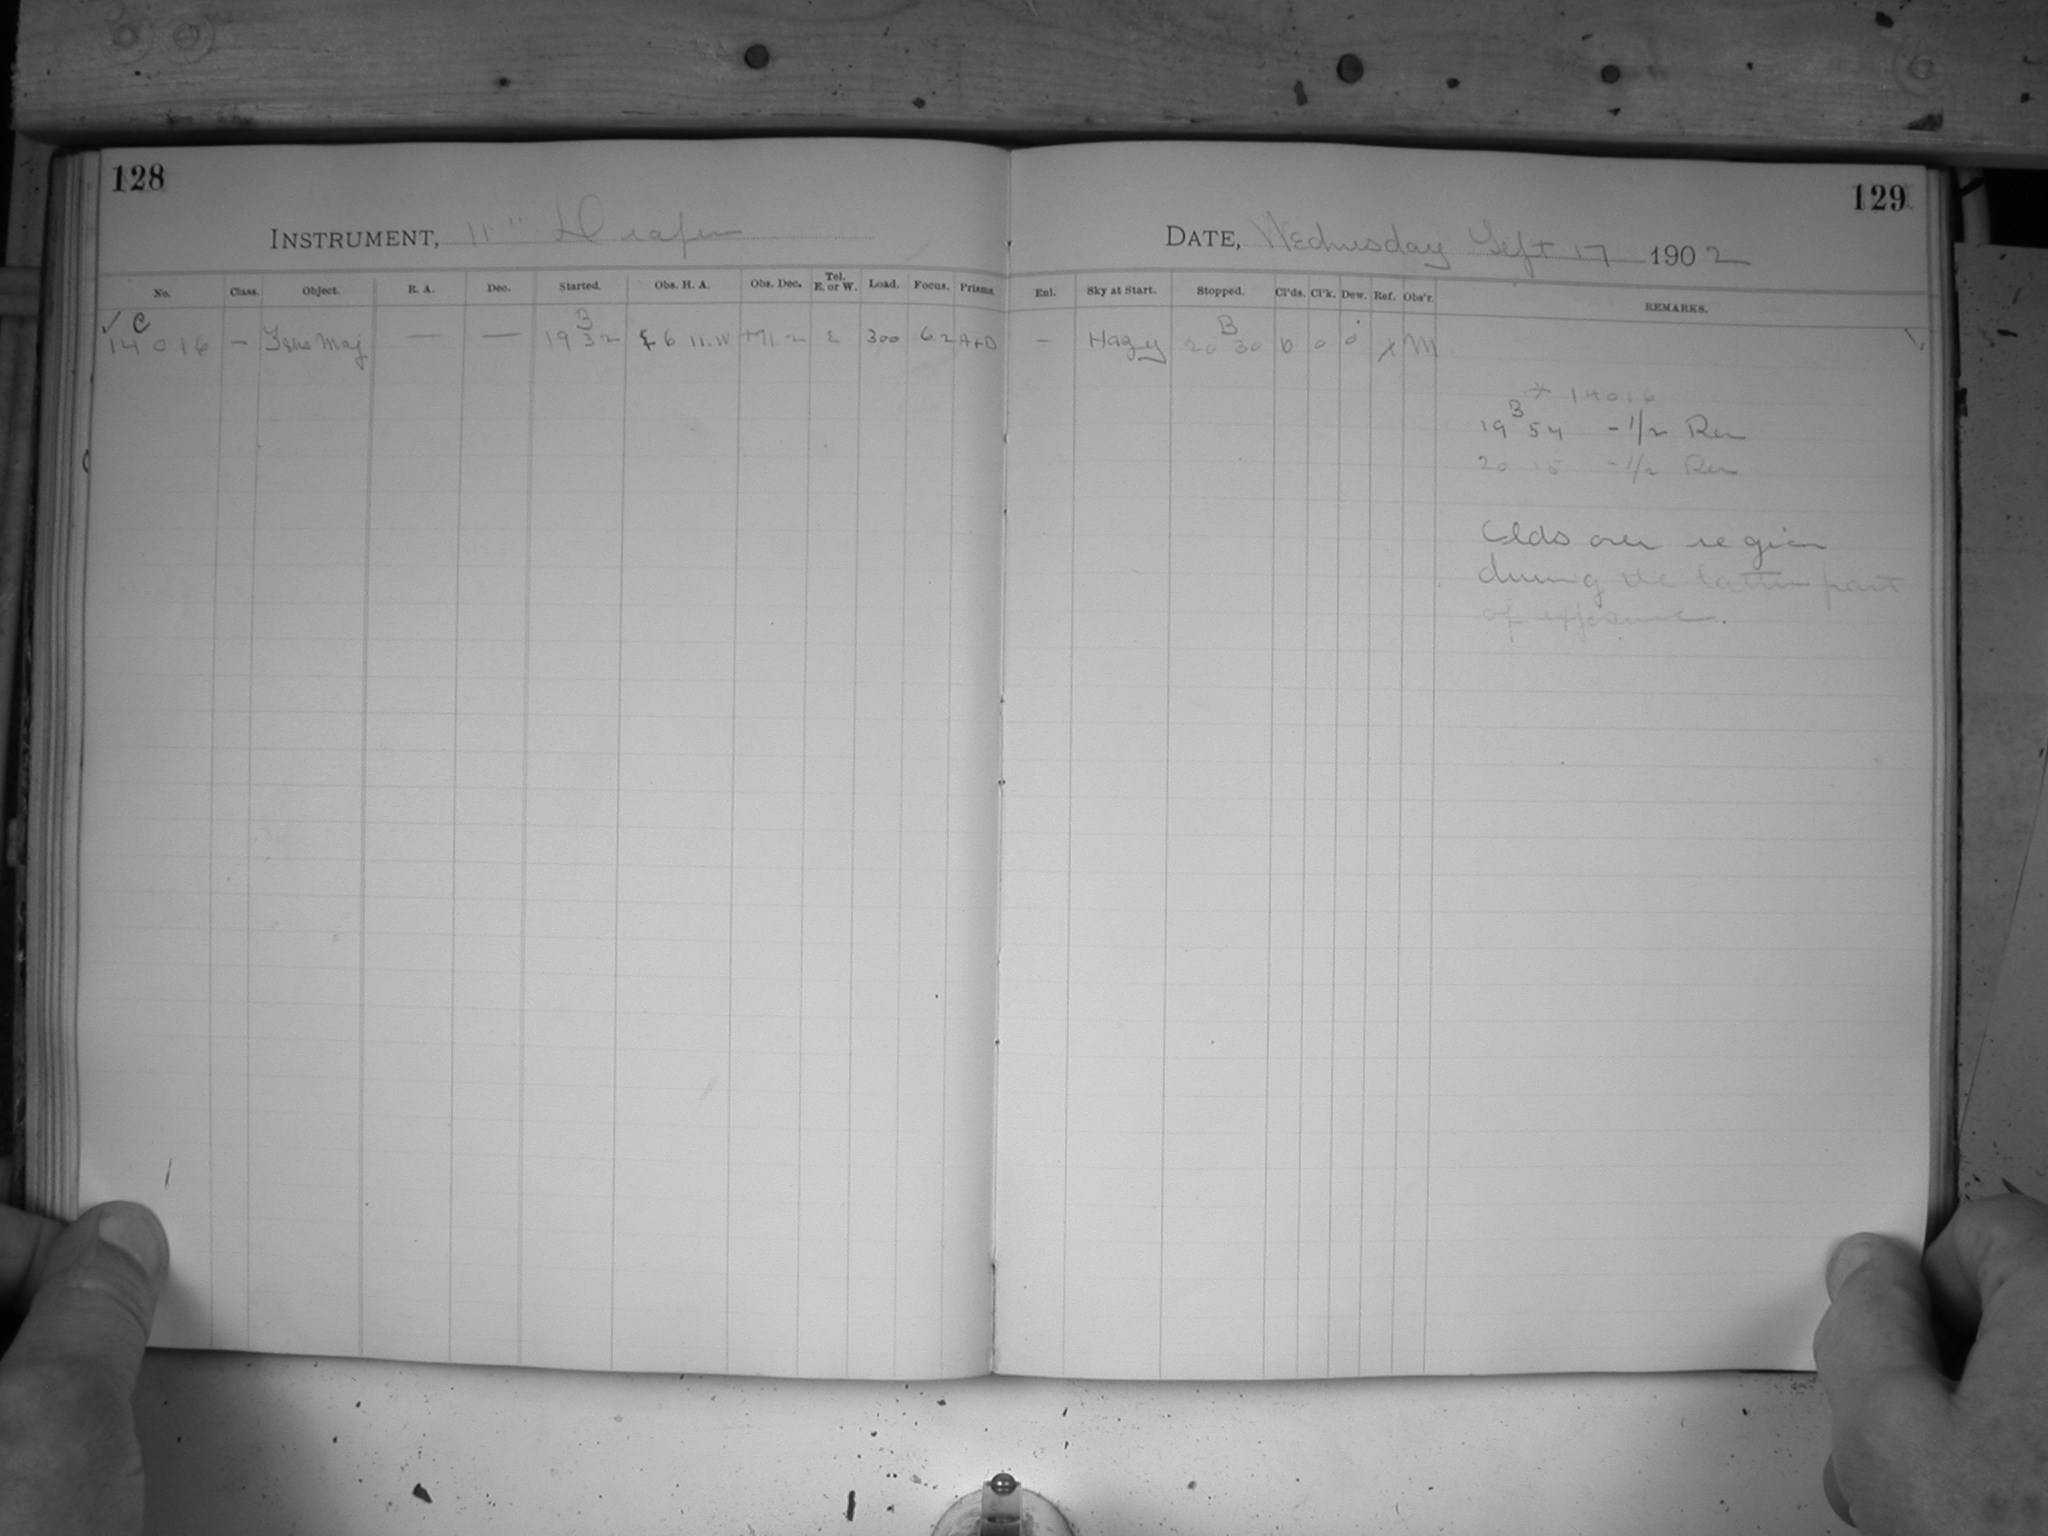 128
INSTRUMENT, 11" Draper
No. Class. Object. R. A. Dec. Started. Obs. H. A. Obs. Dec. Tel. E. or W. Load. Focus. Prisms.
✓ C B
14016 — Maj — — 19 32 6 11. +71.2 E 300 62 A+D
129
DATE, Wednesday Sept 17 1902
Enl. Sky at Start. Stopped. Cl'ds. Cl'k. Dew. Ref. Obs'r. REMARKS.
B
— Hazy 20 30 0 0 0 X M
* 14016
B
19 54 - 1/2 Rev
20 15 - 1/2 Rev
Clds over region
during the latter part
of exposure.